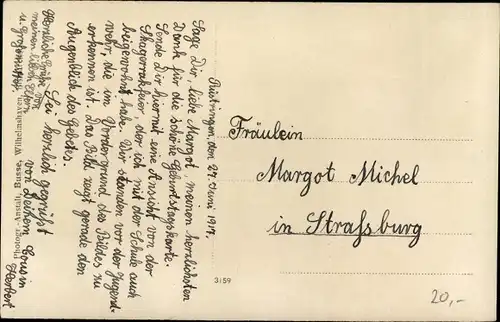 Rüstringen, den 24. Juni 1917.
Sage Dir, liebe Margot, meinen herzlichsten
Dank für die schöne Geburtstagskarte.
Sende Dir hiermit eine Ansicht von der
Skagerrakfeier, der ich mit der Schule auch
beigewohnt habe. Wir standen vor der Jugend-
wehr, die im Vordergrund des Bildes zu
erkennen ist. Das Bild zeigt gerade den
Augenblick des Gebetes.
Sei herzlich gegrüßt
von Deinem Cousin
Herbert
Herzliche Grüße von
meinen lieben Eltern
u. Großmutter.
Wilhelmshaven
Fräulein
Margot Michel
in Straßburg
3159
20,-